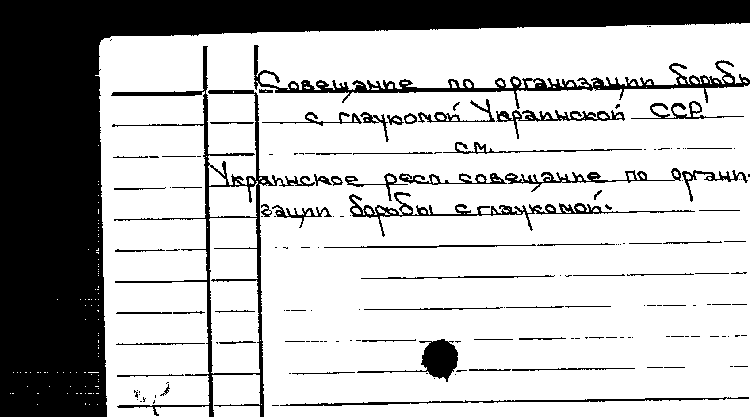 Совещание по организации борьбы
с глаукомой Украинской ССР
см.
Украинское респ. совещание по органи-
зации борьбы с глаукомой.